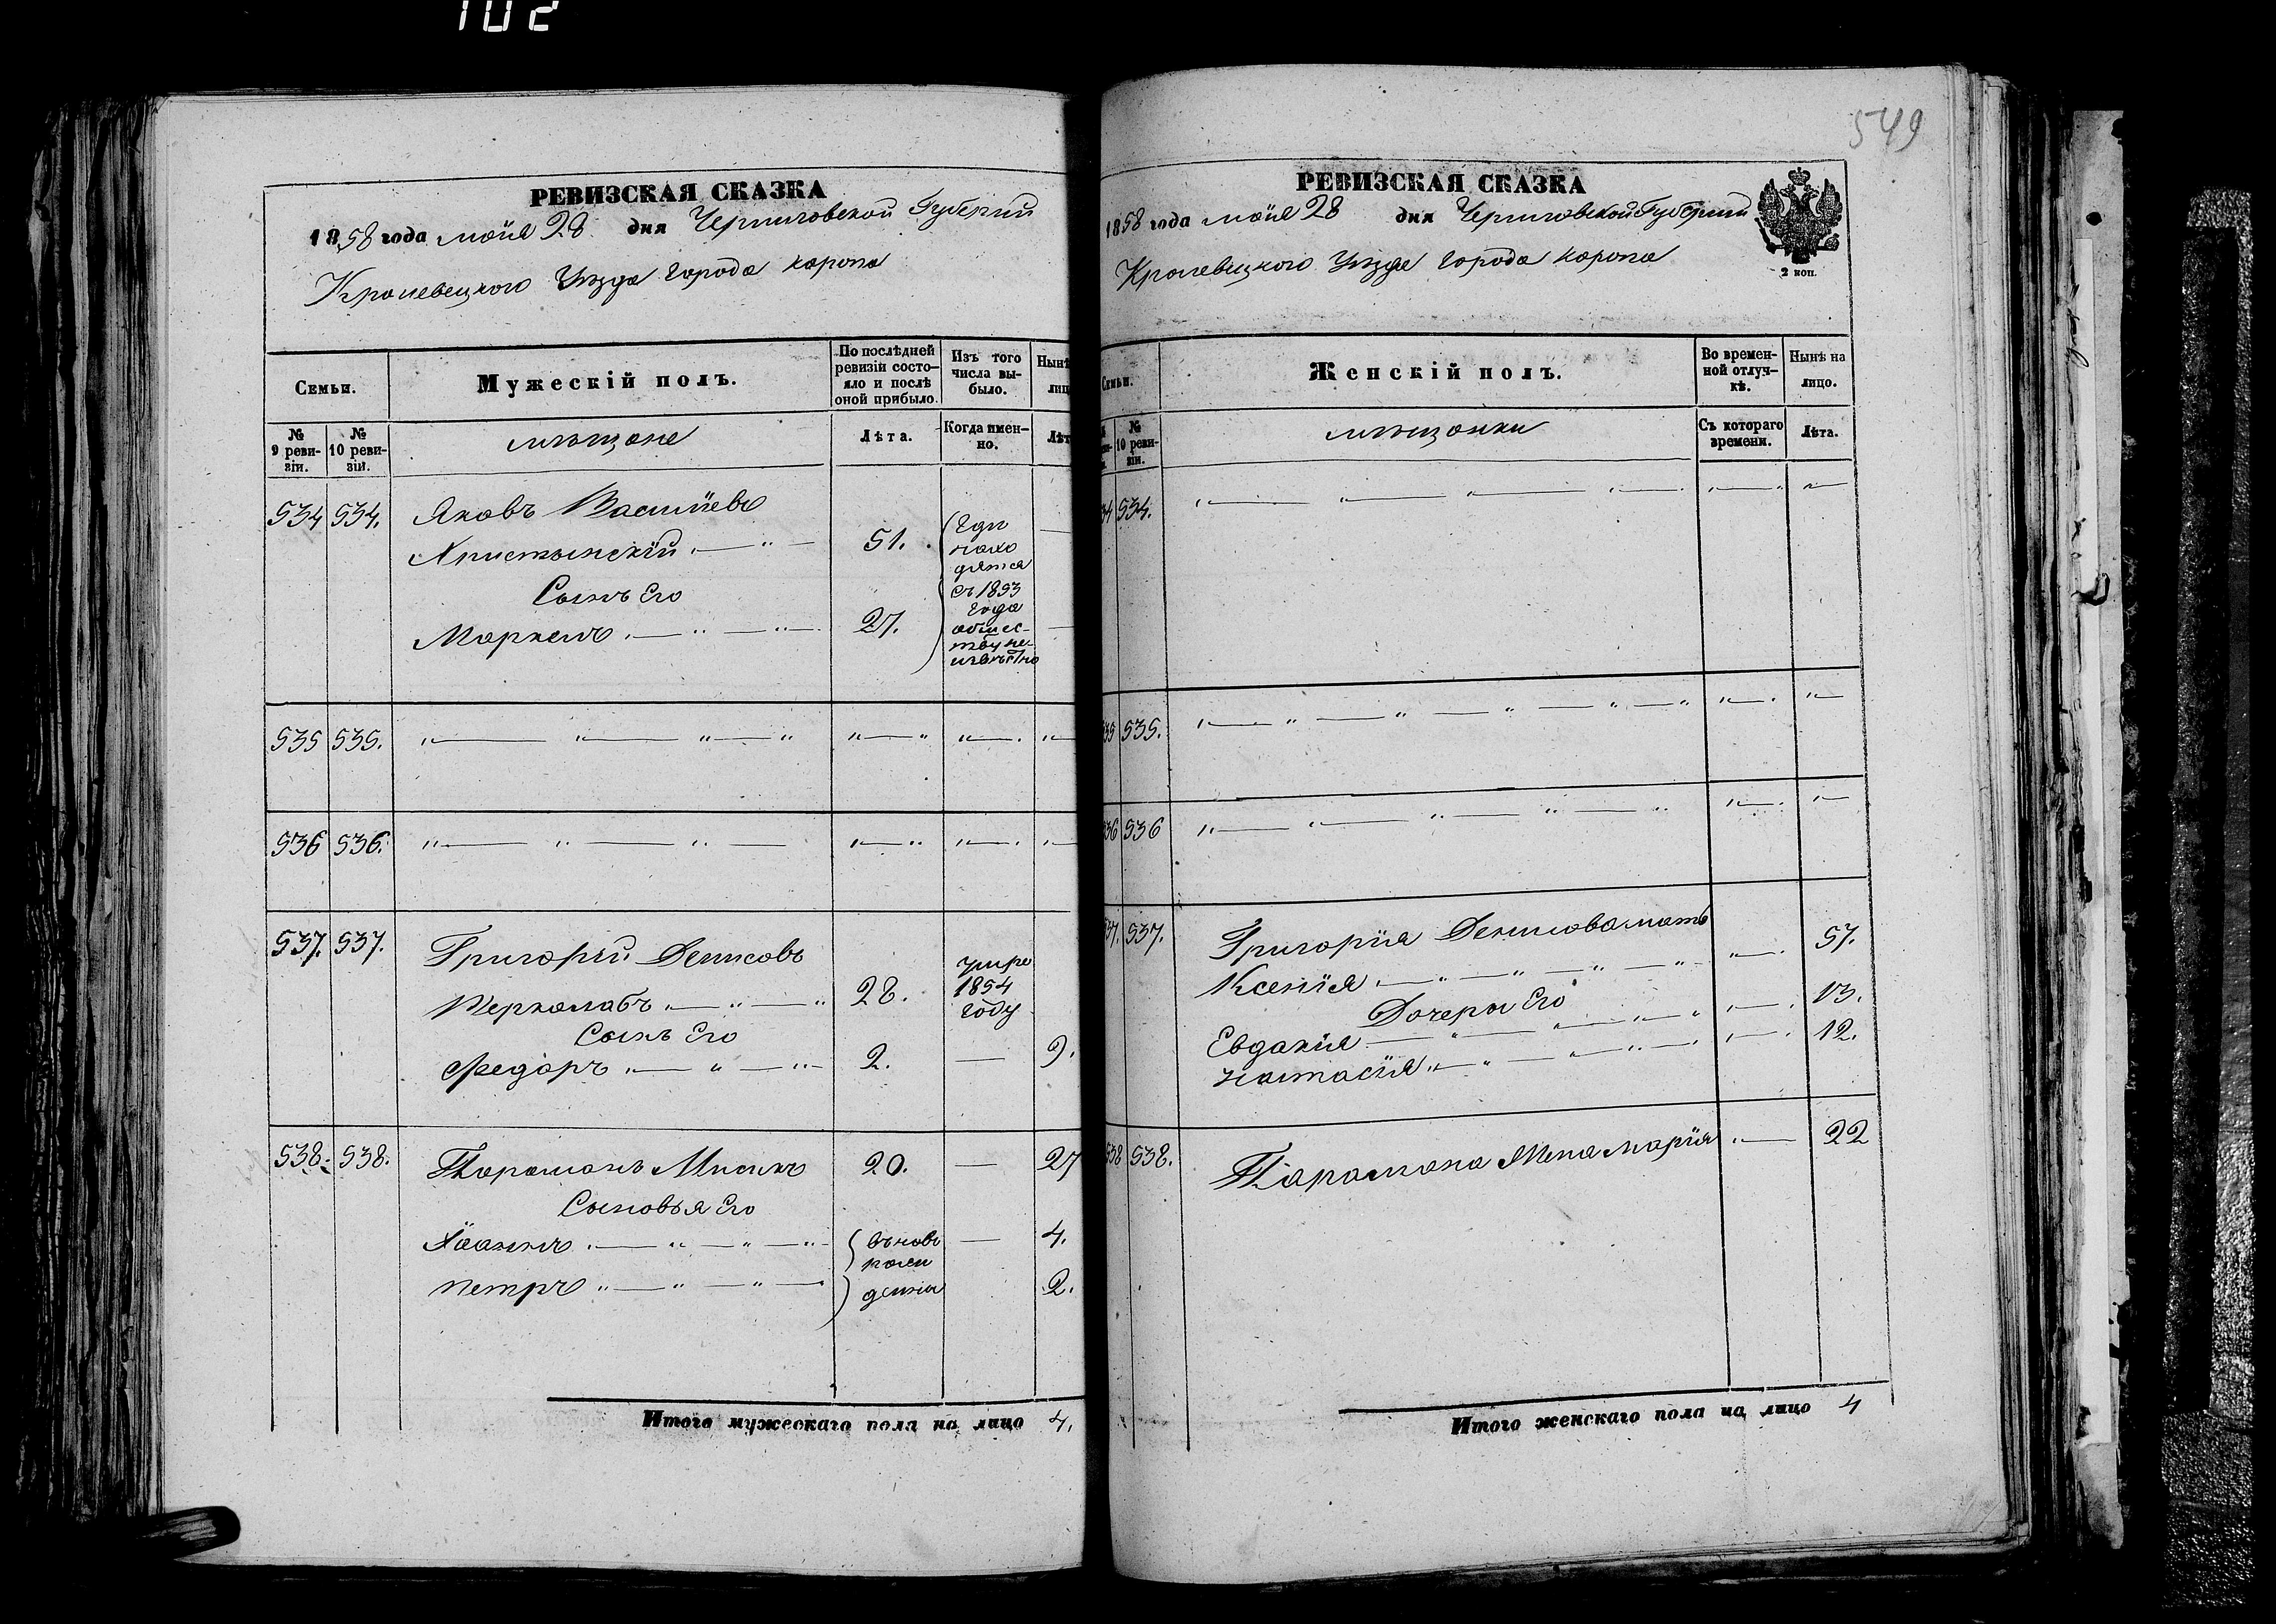 102
549
РЕВИЗСКАЯ СКАЗКА
1858 года маія 28 дня Черниговской Губерніи
Кролевецкого Уѣзда Города Коропа
Семьи.
Мужескій полъ.
По послѣдней ревизіи состояло и послѣ оной прибыло.
Изъ того числа выбыло.
Нынѣ
лиц
№ 9 ревизіи.
№ 10 ревизіи.
мѣщане
Лѣта.
Когда именно.
Лѣт
534 534. Яковъ Васильевъ
51.
Сынъ Его
Маркелъ 27.
Где
нахо
дятся
съ 1853
Года
общес-
тву не-
извѣстно
535 535.
536 536.
537. 537. Григорій Денисовъ
28. умре
1854
году
Сынъ Его
Федоръ 2. 9.
538. 538. Парамонъ 20. 27
Сыновья Его
Іоаннъ 4.
Петръ 2.
въновь
рож
дены
Итого мужескаго пола на лицо 4.
РЕВИЗСКАЯ СКАЗКА
1858 года маія 28 дня Черниговской Губерніи
Кролевецкого Уѣзда Города Коропа
2 коп.
Семьи.
Женскій полъ.
Во временной отлучкѣ.
Нынѣ на лицо.
№ 10 ревизіи.
мѣщанки
Съ котораго времени.
Лѣта.
34 534.
35 535.
36 536
37. 537. Григорія Денисова мать
Ксенія 57.
Дочери Его
Евдакія 13.
Настасія 12.
538 538. Парамона Жена Марія 22
Итого женскаго пола на лицо 4